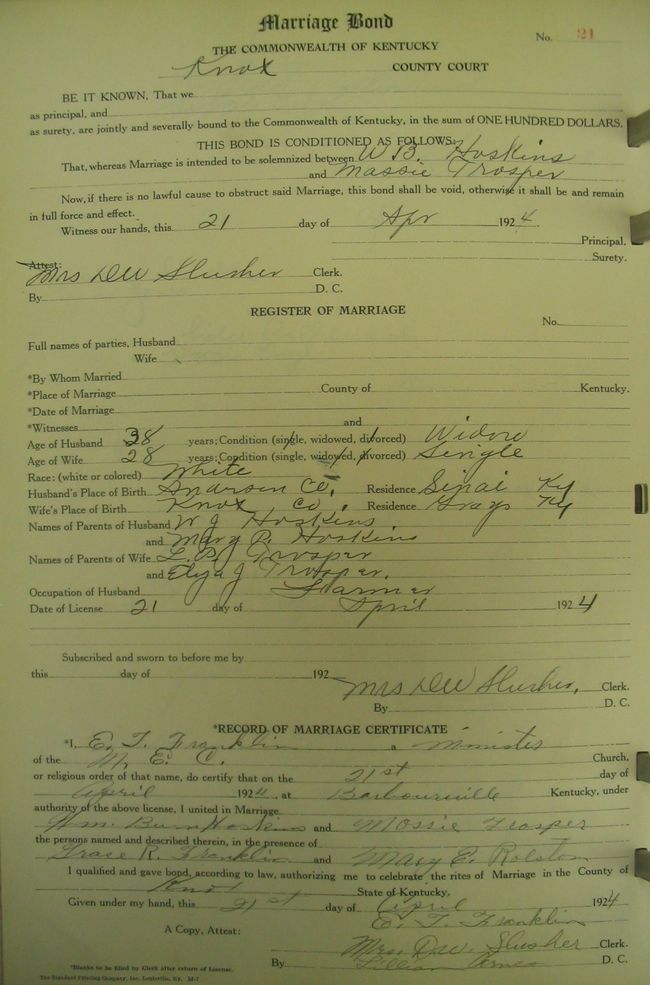 Marriage Bond
No. 21
THE COMMONWEALTH OF KENTUCKY
Knox COUNTY COURT
BE IT KNOWN, That we
as principal, and
as surety, are jointly and severally bound to the Commonwealth of Kentucky, in the sum of ONE HUNDRED DOLLARS.
THIS BOND IS CONDITIONED AS FOLLOWS:
That, whereas Marriage is intended to be solemnized between W B. Hoskins
and Massie Trosper
Now, if there is no lawful cause to obstruct said Marriage, this bond shall be void, otherwise it shall be and remain
in full force and effect.
Witness our hands, this 21 day of Apr 1924.
Principal.
Surety.
Attest:
Mrs DW Slusher Clerk.
By D. C.
REGISTER OF MARRIAGE
No.
Full names of parties, Husband
Wife
*By Whom Married
*Place of Marriage County of Kentucky.
*Date of Marriage
*Witnesses and
Age of Husband 38 years; Condition (single, widowed, divorced) Widow
Age of Wife 28 years; Condition (single, widowed, divorced) Single
Race: (white or colored) White
Husband's Place of Birth Anderson Co. Residence Sinai Ky
Wife's Place of Birth Knox Co. Residence Grays Ky
Names of Parents of Husband W J Hoskins
and Mary P. Hoskins
Names of Parents of Wife L. B. Trosper
and Eliza J Trosper.
Occupation of Husband Farmer
Date of License 21 day of April 1924
Subscribed and sworn to before me by
this day of 192
Mrs DW Slusher, Clerk.
By D. C.
*RECORD OF MARRIAGE CERTIFICATE
*I, E. T. Franklin a Minister
of the M. E. C. Church,
or religious order of that name, do certify that on the 21st day of
April 1924, at Barbourville Kentucky, under
authority of the above license, I united in Marriage
Wm. Burn Hoskins and Mossie Trosper
the persons named and described therein, in the presence of
Grace R. Franklin and Mary E. Rolston
I qualified and gave bond, according to law, authorizing me to celebrate the rites of Marriage in the County of
Knox State of Kentucky.
Given under my hand, this 21st day of April 1924
E. T. Franklin
A Copy, Attest:
Mrs. DW. Slusher Clerk.
By Lillian D. C.
*Blanks to be filled by Clerk after return of License.
The Standard Printing Company, Inc. Louisville, Ky. M-7